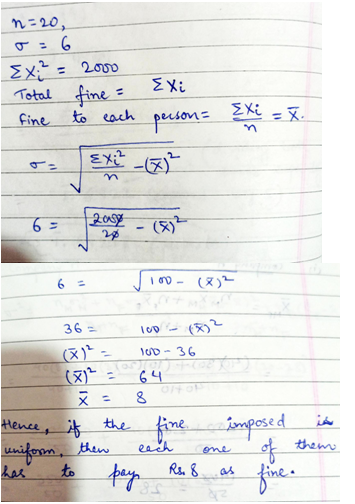 n=20,
σ = 6
Σxi² = 2000
Total fine = Σxi
Fine to each person = Σxi/n = x̄.
σ = √(Σxi²/n − (x̄)²)
6 = √(2000/20 − (x̄)²)
6 = √(100 − (x̄)²)
36 = 100 − (x̄)²
(x̄)² = 100 − 36
(x̄)² = 64
x̄ = 8
Hence, if the fine imposed is
uniform, then each one of them
has to pay Rs. 8 as fine.